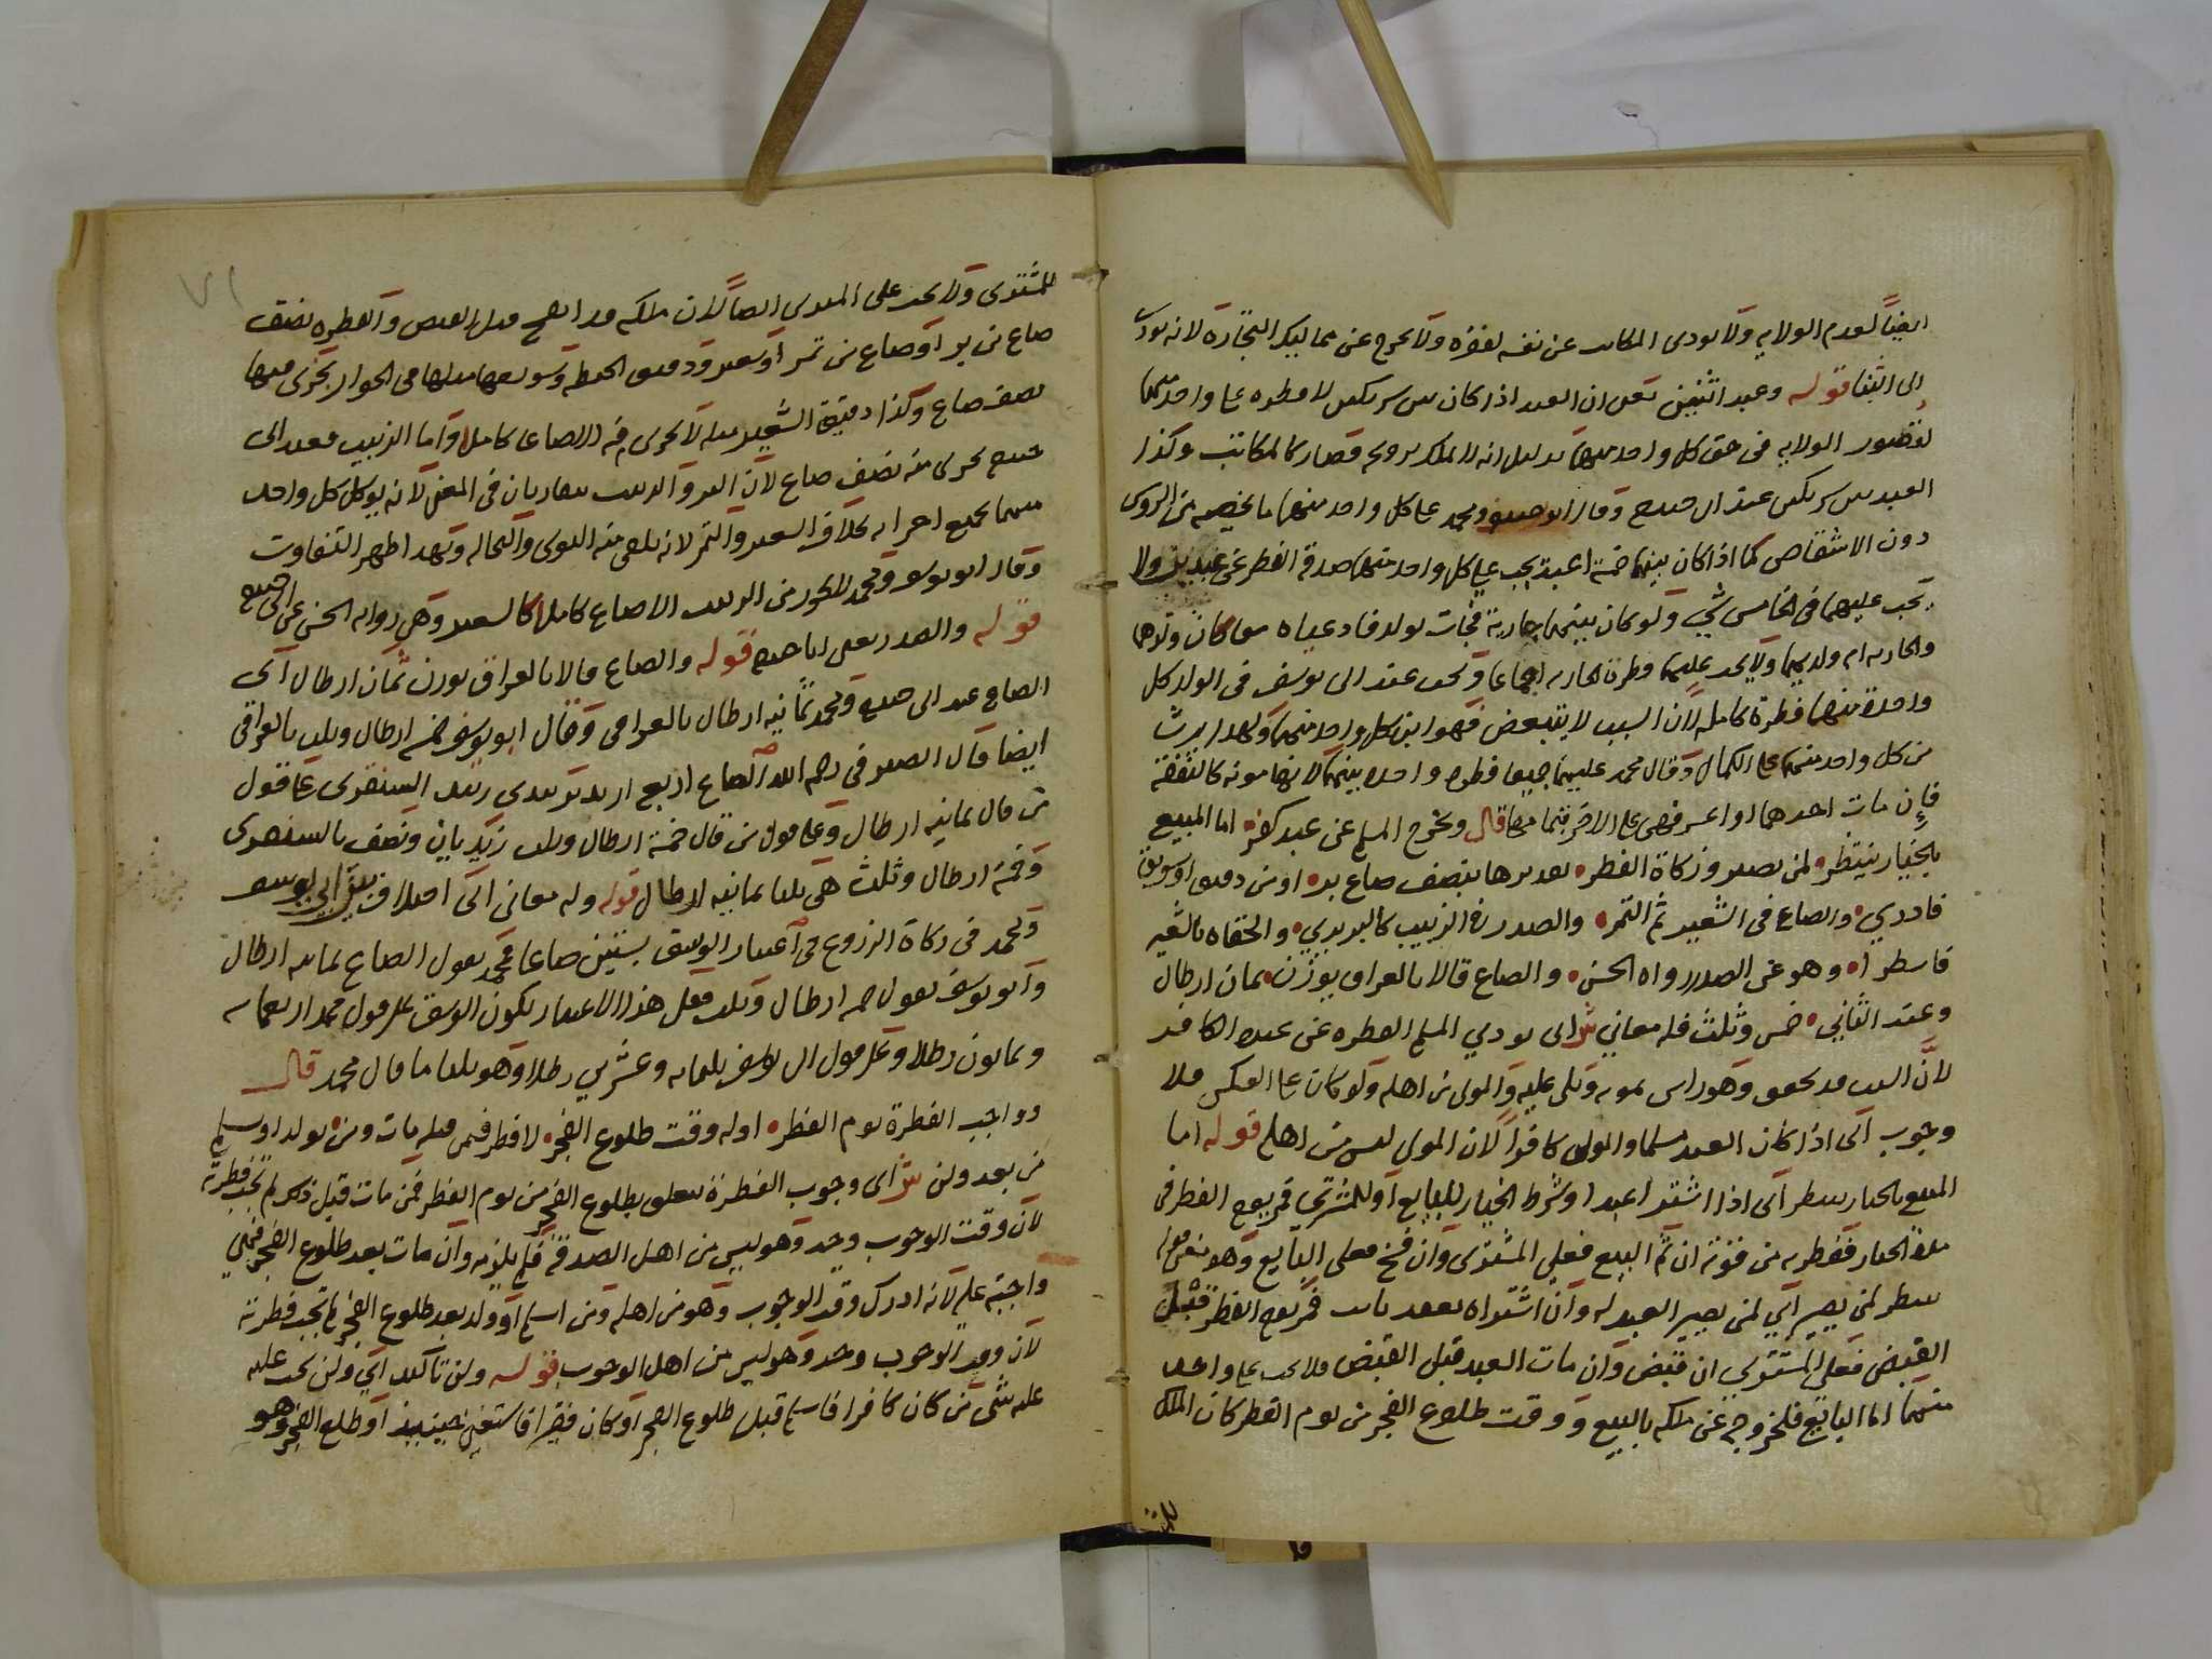 ايضاً لعدم الولايه ولا يودى المكاتب عن نفسه لفقره ولا يخرج عن مماليك التجارة لانه يودى
الى الثنا قوله وعبد اثنين يعنى ان العبد اذا كان بين شريكين لا فطره على واحد منهما
لقصور الولايه فى حق كل واحد منهما بدليل انه لا يملك تزويجه فصار كالمكاتب وكذا
العبد بين شريكين عند ابى حنيفه وقال ابو حنيفه ومحمد على كل واحد منهما ما يخصه من الروس
دون الاشقاص كما اذا كان بينهما خمسة اعبد يجب على كل واحد منهما صدقة الفطر عن عبدين ولا
يجب عليهما فى الخامس شي ولو كان بينهما جارية فجات بولد فادعياه معا كان ولدهما
والجاريه ام ولد لهما ولا يجب عليهما فطرة الجاريه اجماعا ويجب عند ابى يوسف فى الولد كل
واحدة منهما فطرة كاملة لان السبب لا يتبعض فهو ابن كل واحد منهما ولهذا يرث
من كل واحد منهما على الكمال وقال محمد عليهما جميعا فطرة واحدة بينهما لانها مونه كالنفقة
فإن مات احدهما او اعسر فهى على الاخر بتمامها قال ويخرج المسلم عن عبد كفر اما المبيع
بالخيار ينتظر لمن يصير وزكاة الفطر تقديرها بنصف صاع بر او من دقيق او سويق
فاددري والصاع فى الشعير ثم التمر والصدر فى الزبيب كالبر يدري والحقاه بالشعير
فاسطرا وهو عن الصدر رواه الحسن والصاع قالا بالعراق يوزن ثمان ارطال
وعند الثاني خمس وثلث فله معاني ش اى يودي المسلم الفطره عن عبده الكافر
لان السبب قد تحقق وهو راس يمونه ويلى عليه والمولى من اهله ولو كان على العكس فلا
وجوب اى اذا كان العبد مسلما والمولى كافراً لان المولى ليس من اهله قوله اما
المبيع بالخيار ينتظر اى اذا اشترى عبدا وشرط الخيار للبايع او للمشترى فمر يوم الفطر فى
مدة الخيار ففطرته من قوته ان تم البيع فعلى المشترى وان فسخ فعلى البايع وهو معنى قوله
ينتظر لمن يصير اي لمن يصير العبد له وان اشتراه بعقد بات فمر يوم الفطر قبل
القبض فعلى المشتري ان قبض وان مات العبد قبل القبض فلا يجب على واحد
منهما اما البائع فلخروجه عن ملكه بالبيع ووقت طلوع الفجر من يوم الفطر كان الملك
للمشترى ولا يجب على المشترى ايضاً لان ملكه قد انفسخ قبل القبض والفطره نصف
صاع من بر او صاع من تمر او شعير ودقيق الحنطه وسويقها مثلها فى الجواز يجزى منها
نصف صاع وكذا دقيق الشعير مثله لا يجزى فيه الا الصاع كاملا واما الزبيب فعند ابى
حنيفه يجزى منه نصف صاع لان البر والزبيب يتقاربان فى المعنى لانه يوكل كل واحد
منهما بجميع اجزايه بخلاف الشعير والتمر لانه يلقى منه النوى والنخاله وبهذا ظهر التفاوت
وقال ابو يوسف ومحمد لا يجوز من الزبيب الا صاع كاملا كالشعير وهى رواية الحسن عن ابى حنيفه
قوله والصدر يعنى ابا حنيفه قوله والصاع قالا بالعراق يوزن ثمان ارطال اى
الصاع عند ابى حنيفه ومحمد ثمانيه ارطال بالعراقى وقال ابو يوسف خمسه ارطال وثلث بالعراقى
ايضا قال الصيرفى رحمه الله الصاع اربع زبديه السنقرى على قول
من قال ثمانيه ارطال وعلى قول من قال خمسة ارطال وثلث زبديان ونصف بالسنقرى
وخمسة ارطال وثلث هى ثلثا ثمانيه ارطال قوله وله معانى اى اختلاف بين ابي يوسف
ومحمد فى زكاة الزروع فى اعتبار الوسق بستين صاعا فمحمد يقول الصاع ثمانيه ارطال
وابو يوسف يقول خمسه ارطال وثلث فعلى هذا الاعتبار يكون الوسق على قول محمد اربعمايه
وثمانون رطلا وعلى قول ابى يوسف ثلثمايه وعشرين رطلا وهو ثلثا ما قال محمد قال
وواجب الفطرة يوم الفطر اوله وقت طلوع الفجر لا فطر فمن قبله مات ومن يولد او يسلم
من بعد ولن ش اى وجوب الفطرة يتعلق بطلوع الفجر من يوم الفطر فمن مات قبل ذلك لم تجب فطرته
لان وقت الوجوب وجد وهو ليس من اهل الصدقة فلم يلزمه وان مات بعد طلوع الفجر فهى
واجبة عليه لانه ادرك وقت الوجوب وهو من اهله ومن اسلم او ولد بعد طلوع الفجر لم تجب فطرته
لان وقت الوجوب وجد وهو ليس من اهل الوجوب قوله ولن تاكيد اي ولن يجب عليه
عليه شى من كان كافرا فاسلم قبل طلوع الفجر او كان فقيرا فاستغنى حينيذ او طلع الفجر وهو